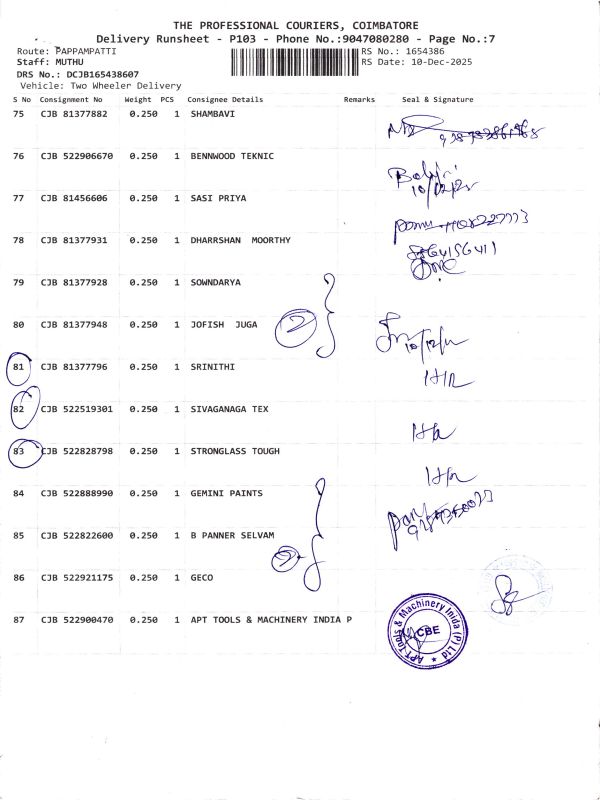 THE PROFESSIONAL COURIERS, COIMBATORE
Delivery Runsheet - P103 - Phone No.:9047080280 - Page No.:7
Route: PAPPAMPATTI
RS No.: 1654386
Staff: MUTHU
RS Date: 10-Dec-2025
DRS No.: DCJB165438607
Vehicle: Two Wheeler Delivery
S No Consignment No Weight PCS Consignee Details Remarks Seal & Signature
75 CJB 81377882 0.250 1 SHAMBAVI
76 CJB 522906670 0.250 1 BENNWOOD TEKNIC
77 CJB 81456606 0.250 1 SASI PRIYA
78 CJB 81377931 0.250 1 DHARRSHAN MOORTHY
79 CJB 81377928 0.250 1 SOWNDARYA
80 CJB 81377948 0.250 1 JOFISH JUGA 2
81 CJB 81377796 0.250 1 SRINITHI
82 CJB 522519301 0.250 1 SIVAGANAGA TEX
83 CJB 522828798 0.250 1 STRONGLASS TOUGH
84 CJB 522888990 0.250 1 GEMINI PAINTS
85 CJB 522822600 0.250 1 B PANNER SELVAM
86 CJB 522921175 0.250 1 GECO
87 CJB 522900470 0.250 1 APT TOOLS & MACHINERY INDIA P
APT Tools & Machinery India (P) Ltd
CBE